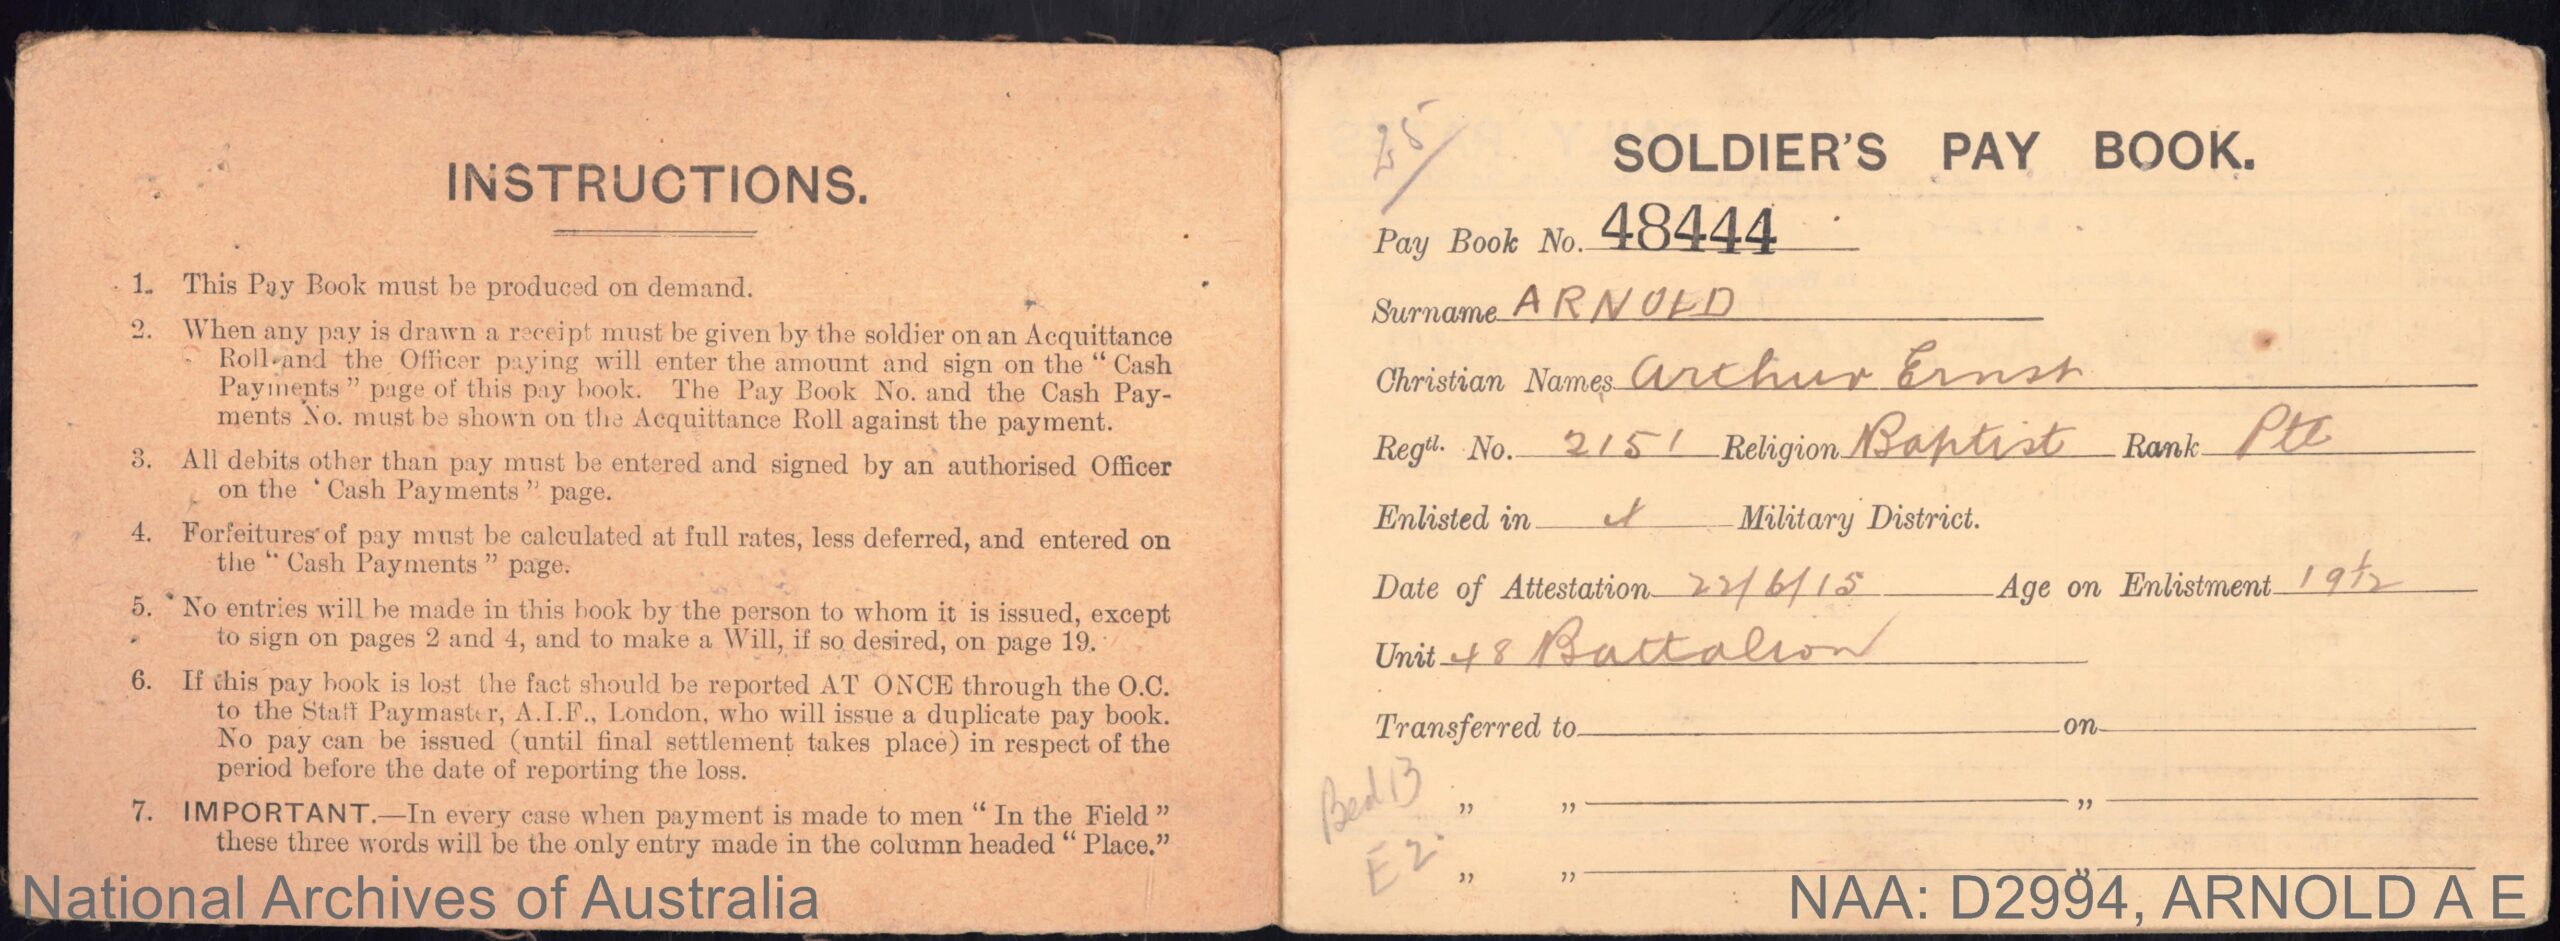 INSTRUCTIONS.
1. This Pay Book must be produced on demand.
2. When any pay is drawn a receipt must be given by the soldier on an Acquittance
Roll and the Officer paying will enter the amount and sign on the “Cash
Payments” page of this pay book. The Pay Book No. and the Cash Pay-
ments No. must be shown on the Acquittance Roll against the payment.
3. All debits other than pay must be entered and signed by an authorised Officer
on the ‘Cash Payments” page.
4. Forfeitures of pay must be calculated at full rates, less deferred, and entered on
the “Cash Payments” page.
5. No entries will be made in this book by the person to whom it is issued, except
to sign on pages 2 and 4, and to make a Will, if so desired, on page 19.
6. If this pay book is lost the fact should be reported AT ONCE through the O.C.
to the Staff Paymaster, A.I.F., London, who will issue a duplicate pay book.
No pay can be issued (until final settlement takes place) in respect of the
period before the date of reporting the loss.
7. IMPORTANT.—In every case when payment is made to men “In the Field”
these three words will be the only entry made in the column headed “Place.”
SOLDIER'S PAY BOOK.
Pay Book No. 48444
Surname ARNOLD
Christian Names Arthur Ernst
Regtl. No. 2151 Religion Baptist Rank Pte
Enlisted in 4 Military District.
Date of Attestation 22/6/15 Age on Enlistment 19 1/2
Unit 48 Battalion
Transferred to on
Bed 13
„ „ „
E 2.
„ „ „
National Archives of Australia
NAA: D2994, ARNOLD A E